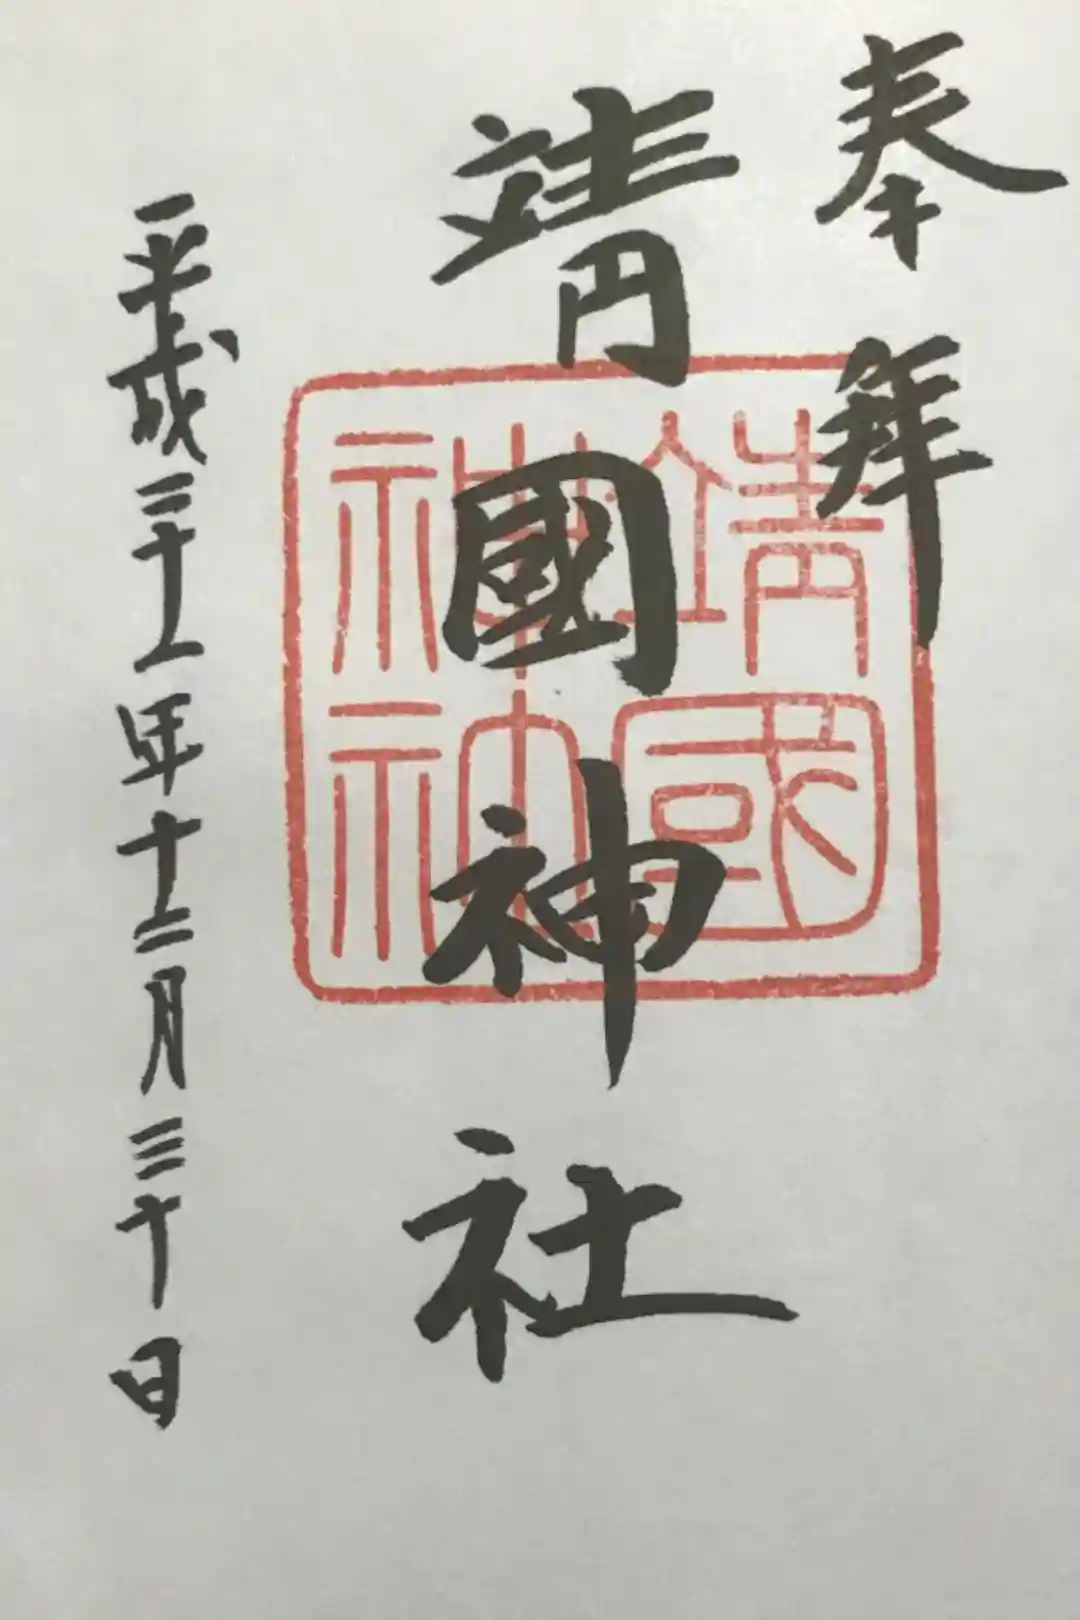 奉拜
靖國神社
平成二十一年十二月三十日
靖國
神社